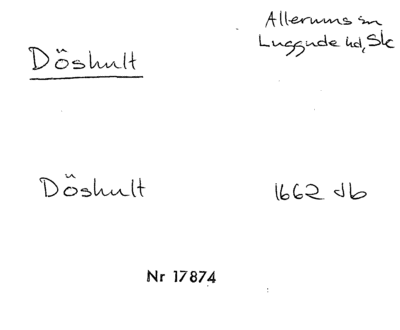 Döshult
Allerums sn
Luggude hd, Sk
Döshult
1662 Jb
Nr 17874